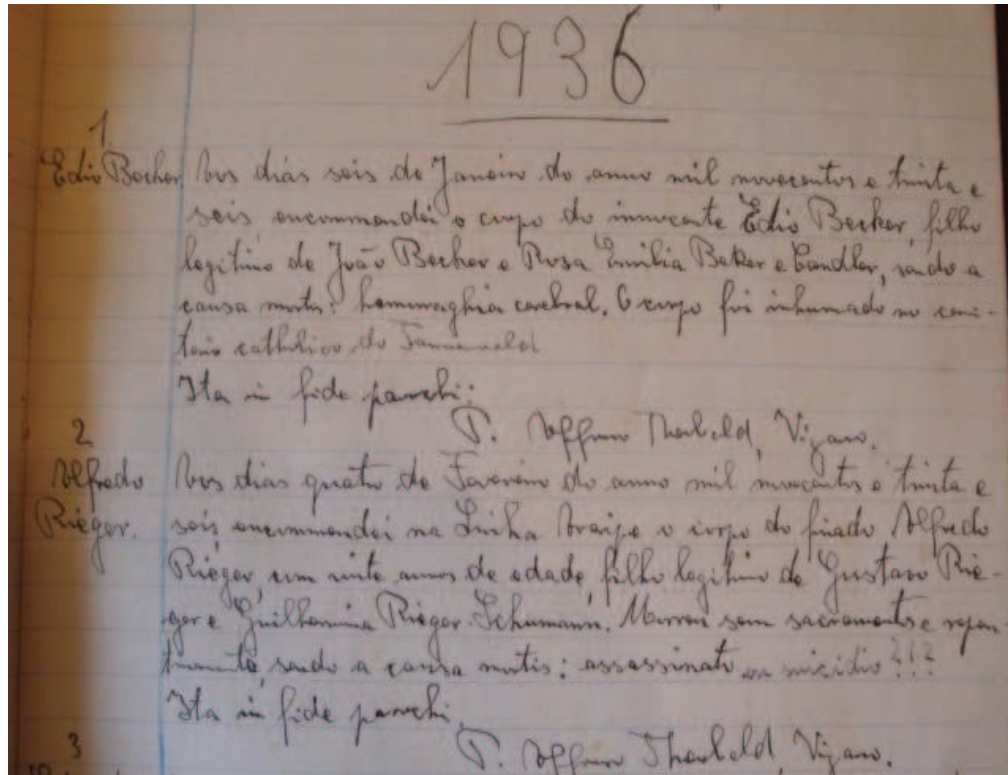 1936
1
Edio Becker Aos dias seis de Janeiro do anno mil novecentos e trinta e
seis encommendei o corpo do innocente Edio Becker, filho
legitimo de João Becker e Rosa Emilia Beker e Candler, sendo a
causa mortis: hemorraghia cerebral. O corpo foi inhumado no cemi-
terio catholico de Tannenwald
Ita in fide parochi:
P. Affonso Theobald, Vigario.
2
Alfredo Aos dias quatro de Fevereiro do anno mil novecentos e trinta e
Rieger. seis encommendei na Linha Araripe o corpo do finado Alfredo
Rieger, com vinte annos de edade, filho legitimo de Gustavo Rie-
ger e Guilhermina Rieger Schumann. Morreu sem sacramentos e repen-
tinamente, sendo a causa mortis: assassinato ou suicidio?!?
Ita in fide parochi.
3
P. Affonso Theobald, Vigario.